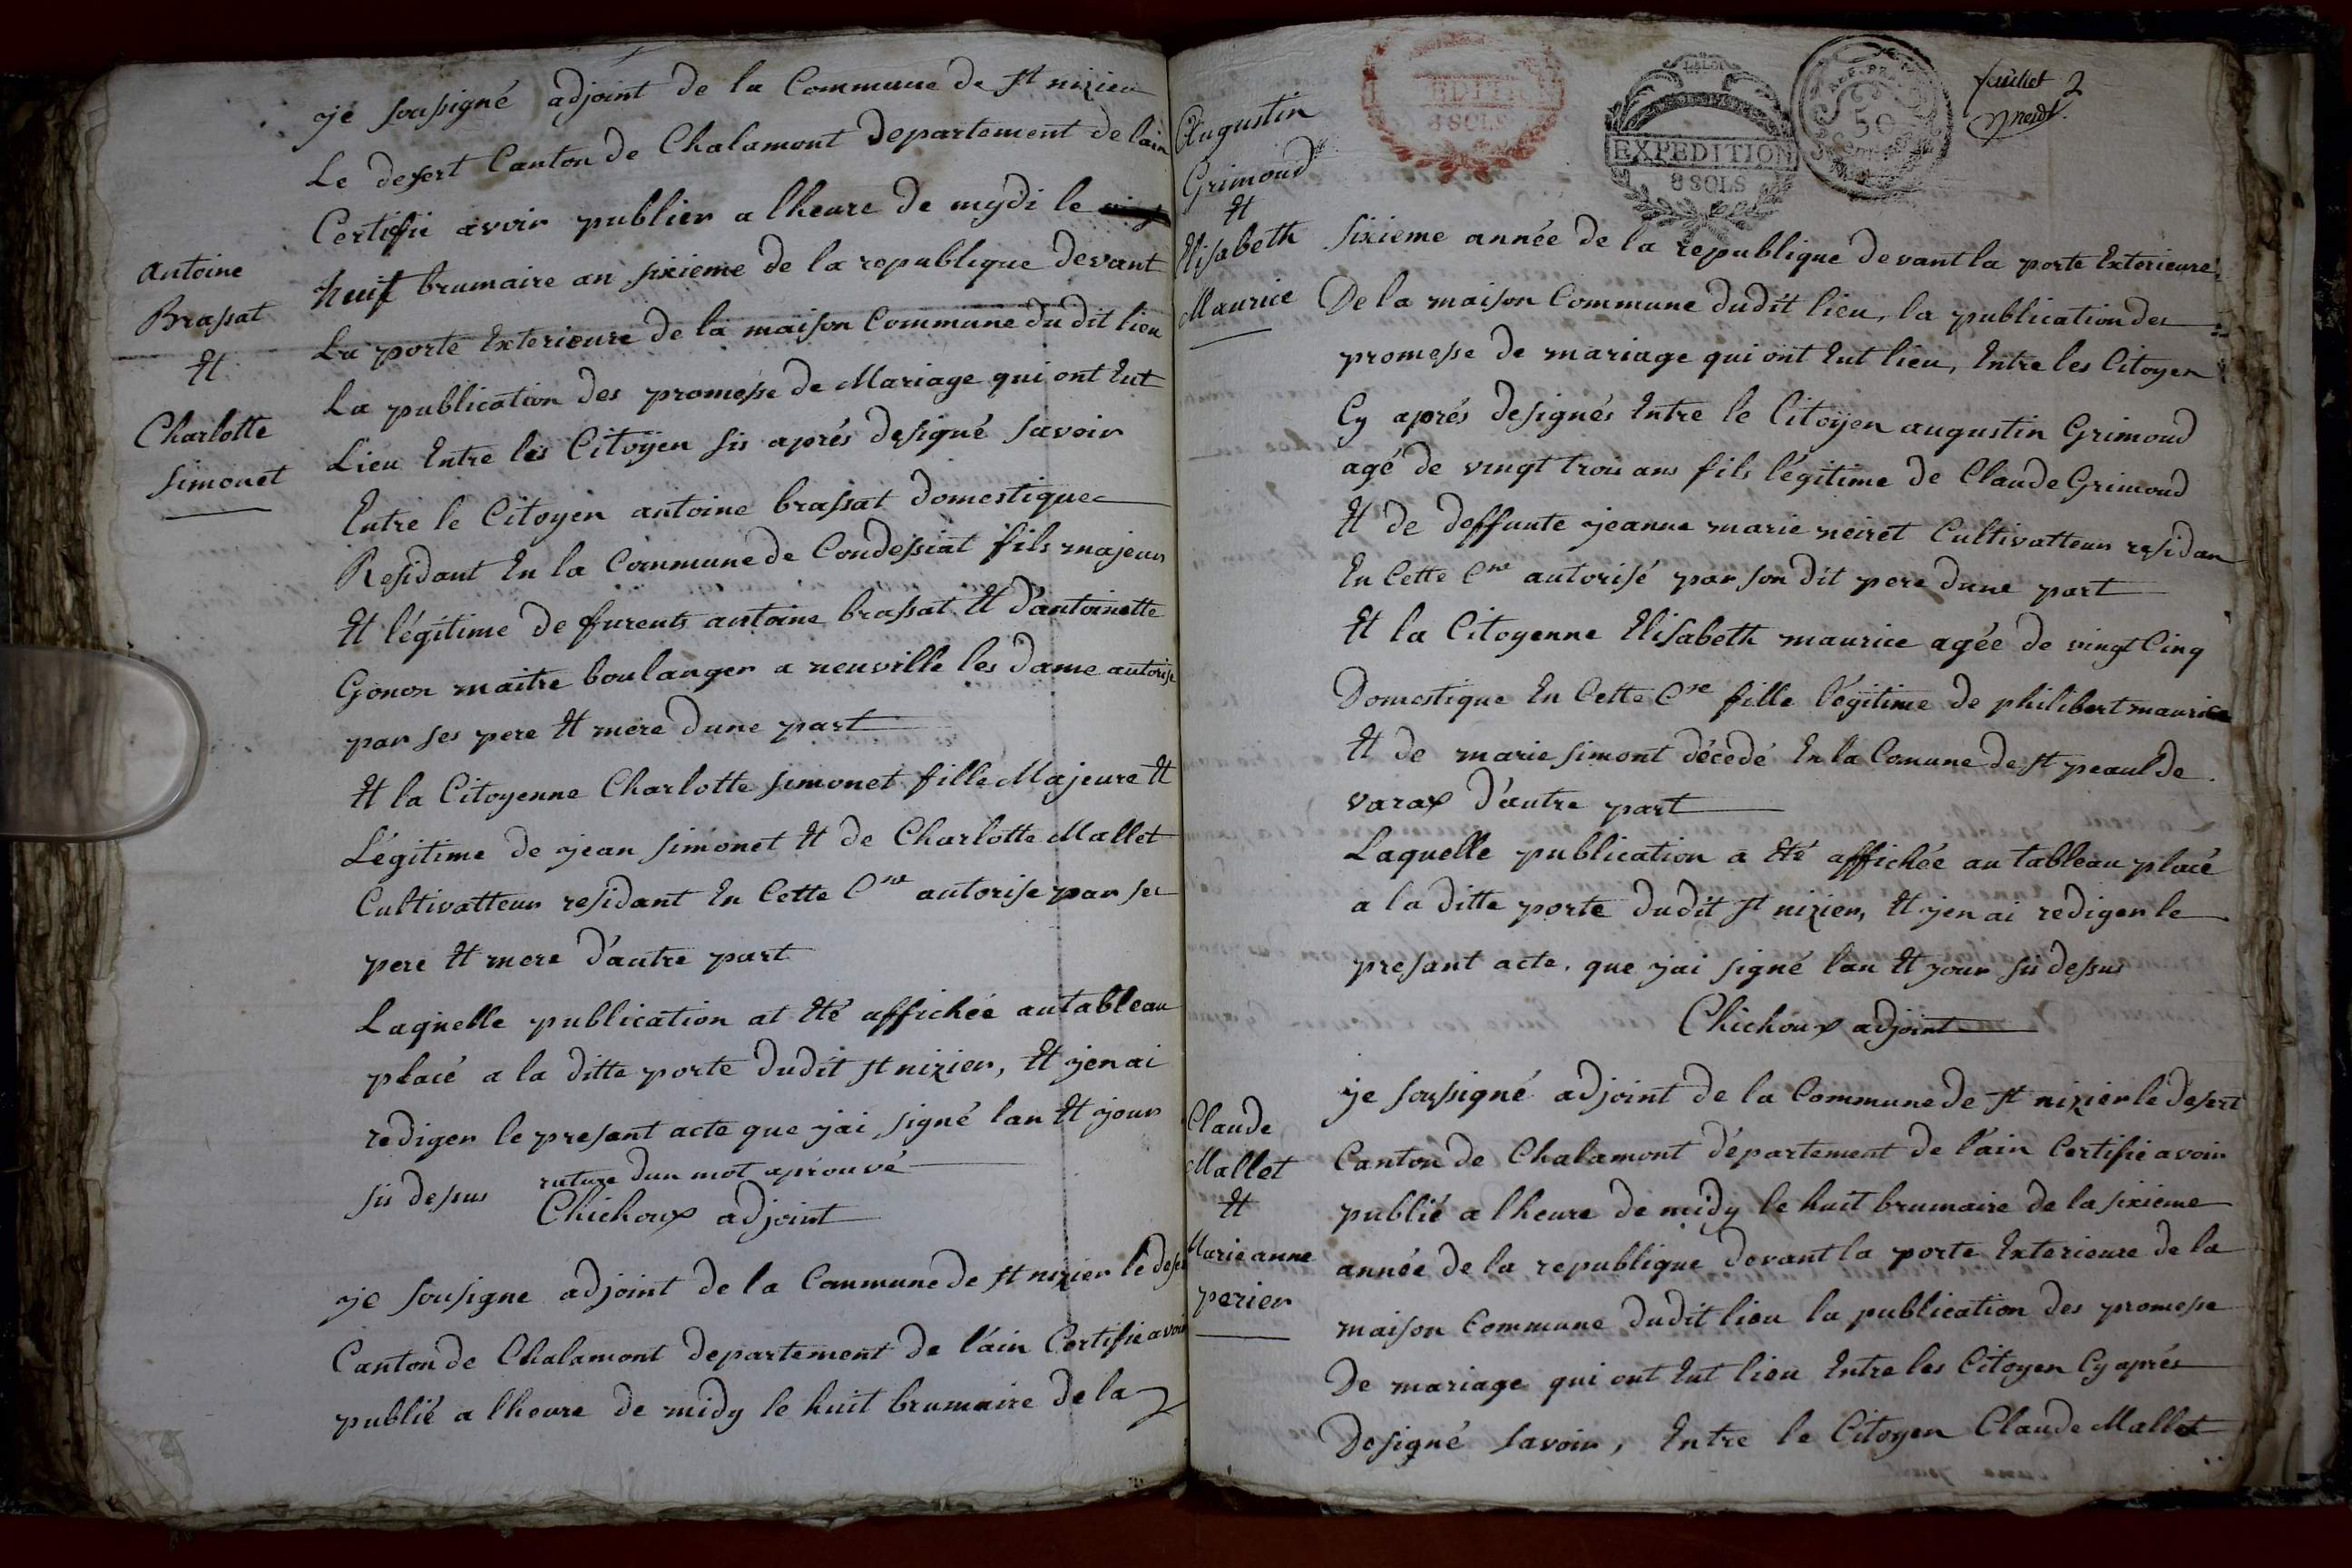 je sousigné adjoint de la Commune de st nizier
Le desert Canton de Chalamont Departement de lain
Certifie avoir publier a lheure de mydi le
huit brumaire an sixieme de la republique devant
La porte Exterieure de la maison Commune du dit lieu
La publication des promesse de Mariage qui ont Eut
Lieu Entre les Citoyen sis aprés designé savoir
Entre le Citoyen antoine brassat Domestique
Residant En la Commune de Condessiat fils majeur
Et légitime de antoine brassat Et d'antoinette
Gonon maitre boulanger a neuville les Dame autorise
par ses pere Et mere Dune part
Et la Citoyenne Charlotte simonet fille Majeure Et
Légitime de jean simonet Et de Charlotte Mallet
Cultivatteur residant En Cette Cne autorise par ses
pere Et mere D'autre part
Laquelle publication at Eté affichée au tableau
placé a la ditte porte Dudit st nizier, Et jen ai
rediger le presant acte que jai signé lan Et jour
sis dessus rature dun mot aprouvé
Chichoux adjoint
je sousigne adjoint de la Commune de st nizier le desert
Canton de Chalamont departement de l'ain Certifie avoir
publié a lheure de midy le huit brumaire de la
Antoine
Brassat
Et
Charlotte
Simonet
feuillet 2
EXPEDITION
8 SOLS
EDIT
8 SOLS
LA LOI
REP. FRA
50
Augustin
Grimoud
Et
Elisabeth
Maurice
sixieme année de la republique devant la porte Exterieure
De la maison Commune dudit lieu, la publication des
promesse de mariage qui ont Eut lieu, Entre les Citoyen
Cy aprés designés Entre le Citoyen augustin Grimoud
agé de vingt trois ans fils légitime de Claude Grimoud
Et de deffunte jeanne marie neiret Cultivatteur residan
En Cette Cne autorisé par son dit pere dune part
Et la Citoyenne Elisabeth maurice agée de vingt Cinq
Domestique En Cette Cne fille légitime de philibert maurice
Et de marie simont décedé En la Comune de st peaul de
varax D'autre part
Laquelle publication a Eté affichée au tableau placé
a la ditte porte dudit st nizier, Et jen ai rediger le
presant acte. que jai signé lan Et jour sis dessus
Chichoux adjoint
Claude
Mallet
Et
Marie anne
perier
je sousigné adjoint de la Commune de st nizier le desert
Canton de Chalamont département de l'ain Certifie avoir
publié a lheure de midy le huit brumaire de la sixieme
année de la republique devant la porte Exterieure de la
maison Commune dudit lieu la publication des promesse
De mariage qui ont Eut lieu Entre les Citoyen Cy aprés
Designé savoir, Entre le Citoyen Claude Mallet